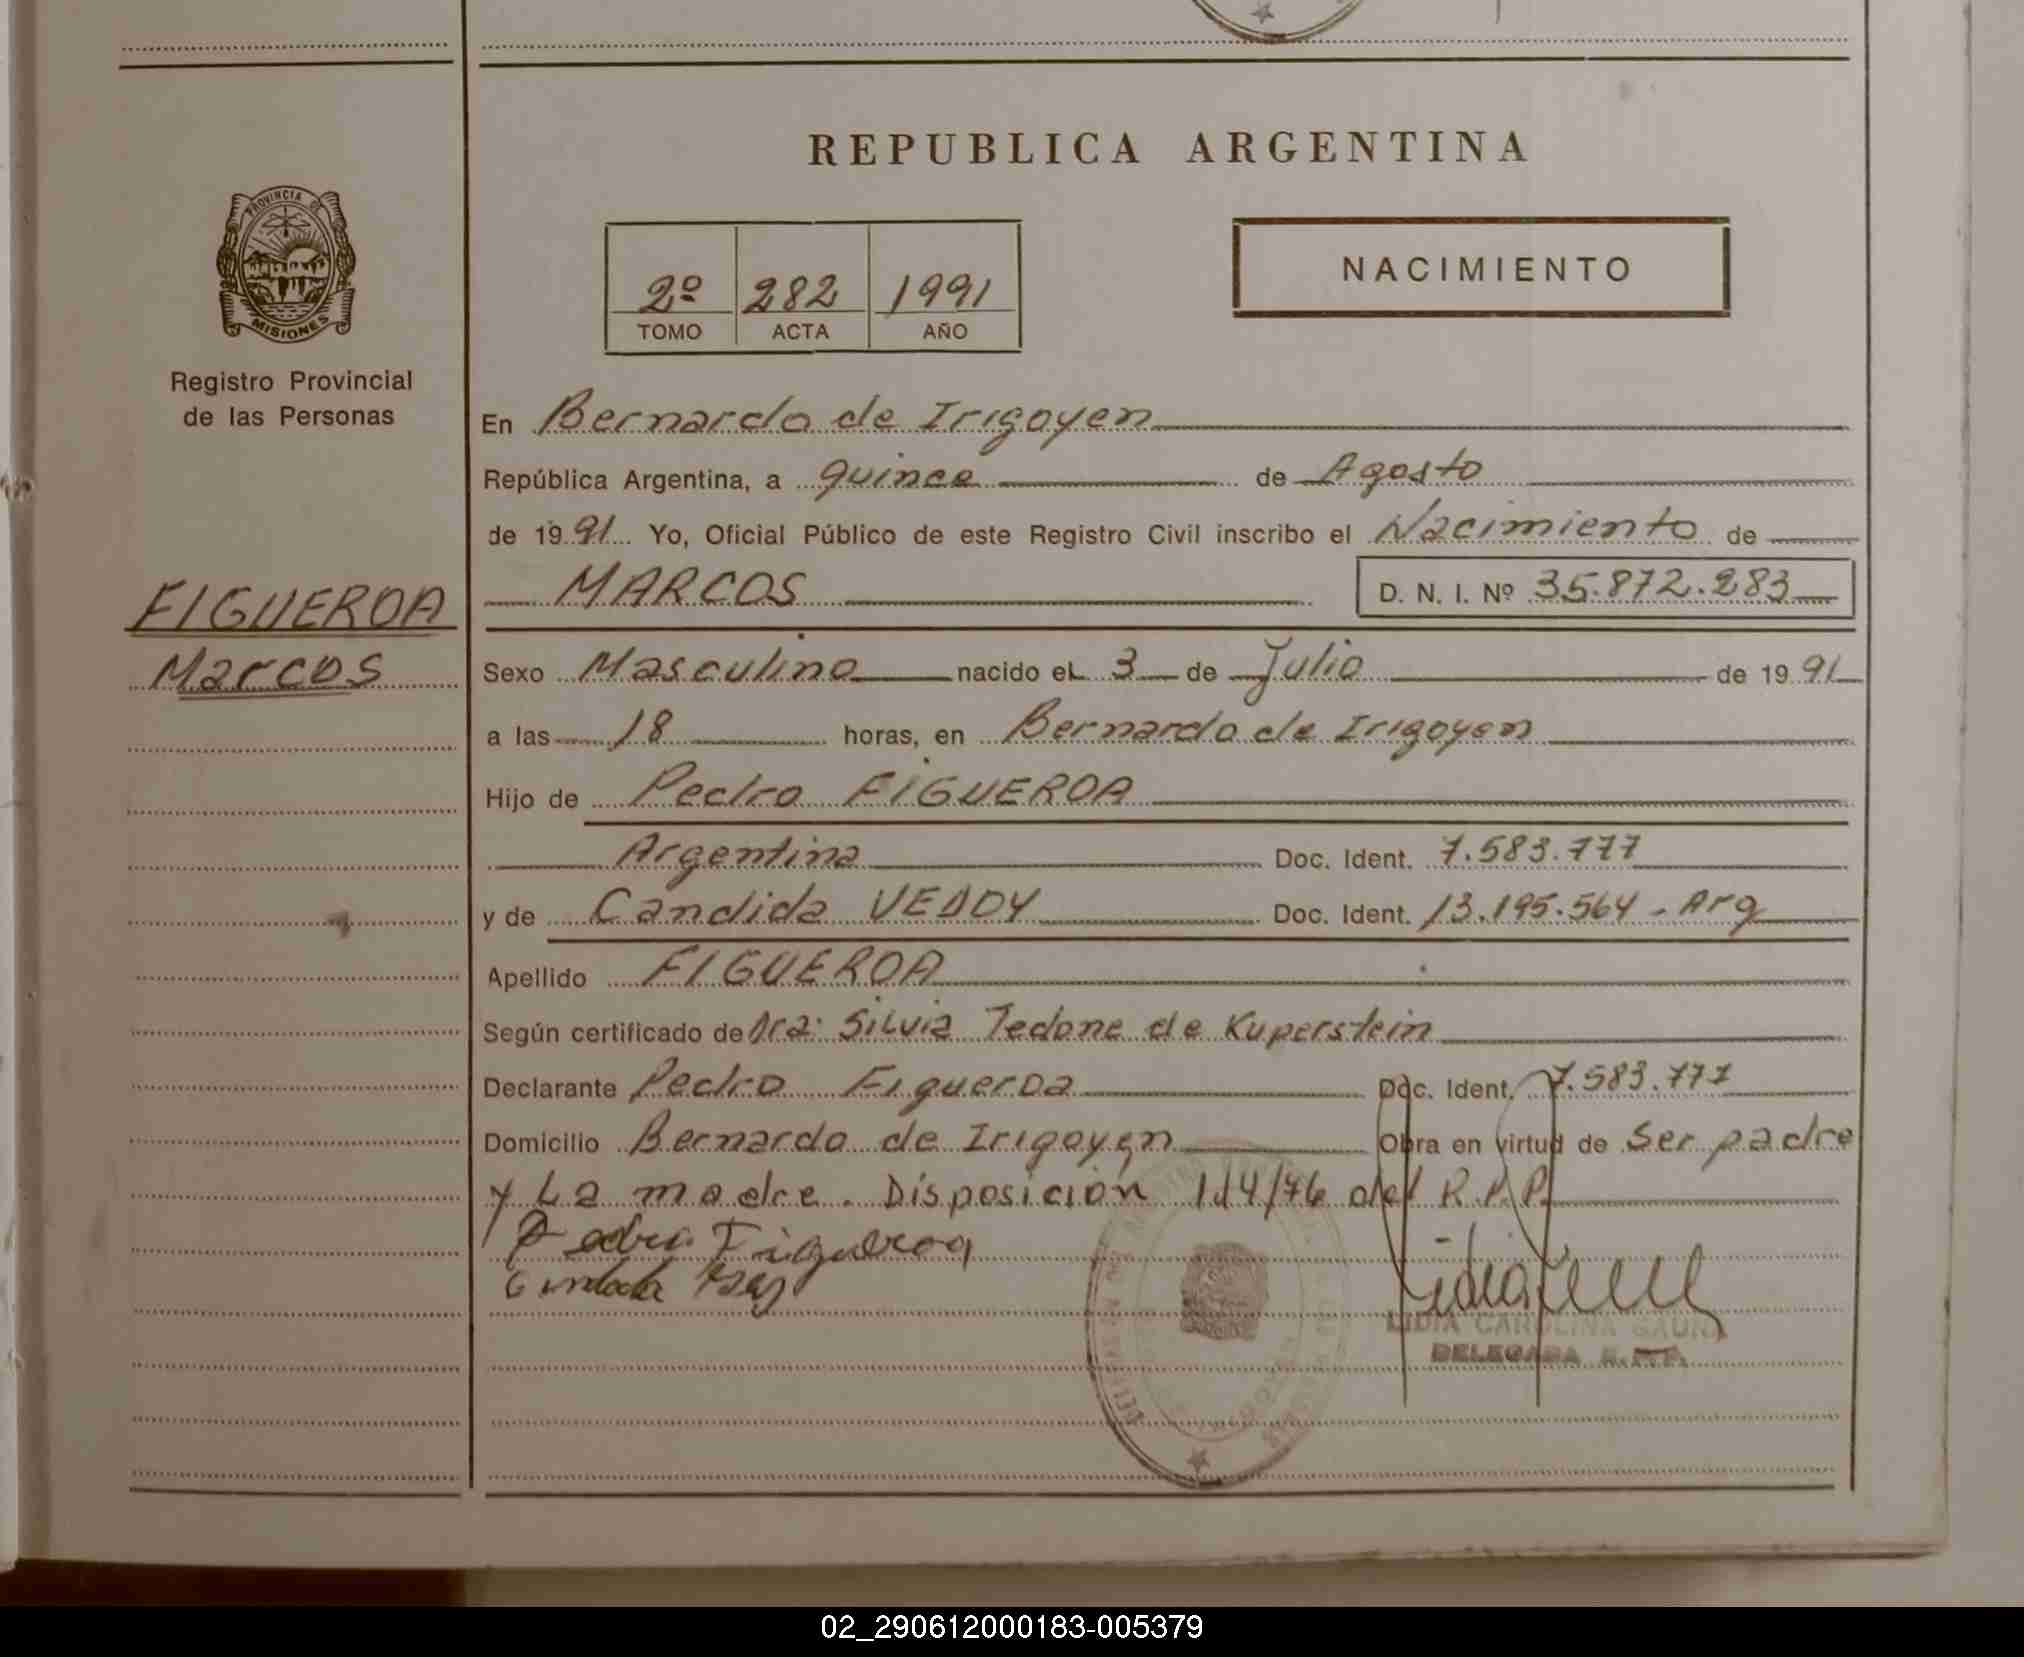 REPUBLICA ARGENTINA
PROVINCIA DE
MISIONES
Registro Provincial
de las Personas
2º 282 1991
TOMO ACTA AÑO
NACIMIENTO
En Bernardo de Irigoyen
República Argentina, a quince de Agosto
de 1991 Yo, Oficial Público de este Registro Civil inscribo el Nacimiento de
MARCOS D. N. I. Nº 35.872.283
FIGUEROA
Marcos
Sexo Masculino nacido el 3 de Julio de 1991
a las 18 horas, en Bernardo de Irigoyen
Hijo de Pedro FIGUEROA
Argentina Doc. Ident. 7.583.777
y de Candida VEDDY Doc. Ident. 13.195.564 - Arg
Apellido FIGUEROA
Según certificado de Dra: Silvia Tedone de Kuperstein
Declarante Pedro Figueroa Doc. Ident. 7.583.777
Domicilio Bernardo de Irigoyen Obra en virtud de Ser padre
y La madre. Disposición 114/76 del R.P.P.
Pedro Figueroa
LIDIA CAROLINA
DELEGADA R.P.P.
02_290612000183-005379